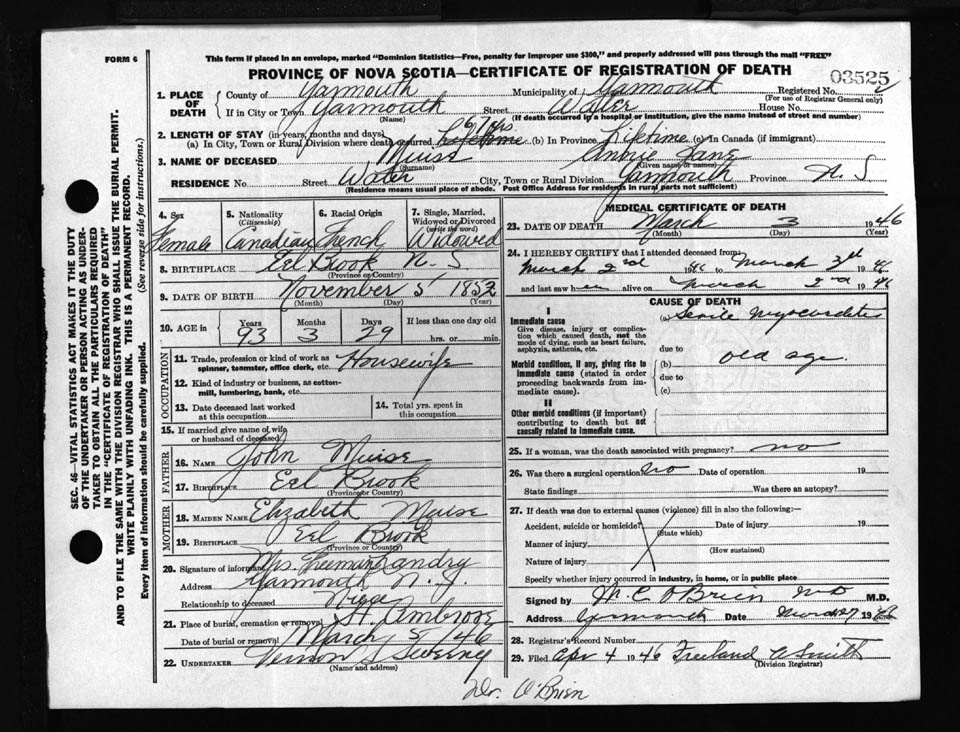 FORM 6
This form if placed in an envelope, marked "Dominion Statistics—Free, penalty for improper use $300," and properly addressed will pass through the mail "FREE"
PROVINCE OF NOVA SCOTIA—CERTIFICATE OF REGISTRATION OF DEATH
03525
1. PLACE OF DEATH County of Yarmouth Municipality of Yarmouth Registered No.
(For use of Registrar General only)
If in City or Town Yarmouth Street Water House No.
(Name) (If death occurred in a hospital or institution, give the name instead of street and number)
2. LENGTH OF STAY (in years, months and days) 67 yrs.
(a) In City, Town or Rural Division where death occurred Lifetime (b) In Province Lifetime (c) In Canada (if immigrant)
3. NAME OF DECEASED Muise Annie Jane
(Surname) (Given name or names)
RESIDENCE No. Street Water City, Town or Rural Division Yarmouth Province N. S.
(Residence means usual place of abode. Post Office Address for residents in rural parts not sufficient)
SEC. 46—VITAL STATISTICS ACT MAKES IT THE DUTY
OF THE UNDERTAKER OR PERSON ACTING AS UNDER-
TAKER TO OBTAIN ALL THE PARTICULARS REQUIRED
IN THE "CERTIFICATE OF REGISTRATION OF DEATH"
AND TO FILE THE SAME WITH THE DIVISION REGISTRAR WHO SHALL ISSUE THE BURIAL PERMIT.
WRITE PLAINLY WITH UNFADING INK. THIS IS A PERMANENT RECORD.
Every item of information should be carefully supplied. (See reverse side for instructions.)
4. Sex Female
5. Nationality (Citizenship) Canadian
6. Racial Origin French
7. Single, Married, Widowed or Divorced (write the word) Widowed
8. BIRTHPLACE Eel Brook N. S.
(Province or Country)
9. DATE OF BIRTH November 5 1852
(Month) (Day) (Year)
10. AGE in Years Months Days If less than one day old
93 3 29 hrs. or min.
OCCUPATION
11. Trade, profession or kind of work as spinner, teamster, office clerk, etc. Housewife
12. Kind of industry or business, as cotton-mill, lumbering, bank, etc.
13. Date deceased last worked at this occupation
14. Total yrs. spent in this occupation
15. If married give name of wife or husband of deceased
FATHER
16. NAME John Muise
17. BIRTHPLACE Eel Brook
(Province or Country)
MOTHER
18. MAIDEN NAME Elizabeth Muise
19. BIRTHPLACE Eel Brook
(Province or Country)
20. Signature of informant Mrs. Freeman Landry
Address Yarmouth N. S.
Relationship to deceased Niece
21. Place of burial, cremation or removal St. Ambrose
Date of burial or removal March 5/46
22. UNDERTAKER Vernon S Sweeney
(Name and address)
MEDICAL CERTIFICATE OF DEATH
23. DATE OF DEATH March 3 1946
(Month) (Day) (Year)
24. I HEREBY CERTIFY that I attended deceased from
March 2nd 1946 to March 3rd 1946
and last saw her alive on March 2nd 1946
CAUSE OF DEATH
I
Immediate cause
Give disease, injury or complication which caused death, not the mode of dying, such as heart failure, asphyxia, asthenia, etc.
(a) Senile Myocarditis
due to
Morbid conditions, if any, giving rise to immediate cause (stated in order proceeding backwards from immediate cause).
(b) old age.
due to
(c)
II
Other morbid conditions (if important) contributing to death but not causally related to immediate cause.
25. If a woman, was the death associated with pregnancy? no
26. Was there a surgical operation? no Date of operation 19
State findings Was there an autopsy?
27. If death was due to external causes (violence) fill in also the following:—
Accident, suicide or homicide? Date of injury 19
(State which)
Manner of injury
(How sustained)
Nature of injury
Specify whether injury occurred in industry, in home, or in public place
Signed by M. C. O'Brien MD M.D.
Address Yarmouth Date March 7 1946
28. Registrar's Record Number
29. Filed Apr 4 1946 Freeland A Smith
(Division Registrar)
Dr. O'Brien